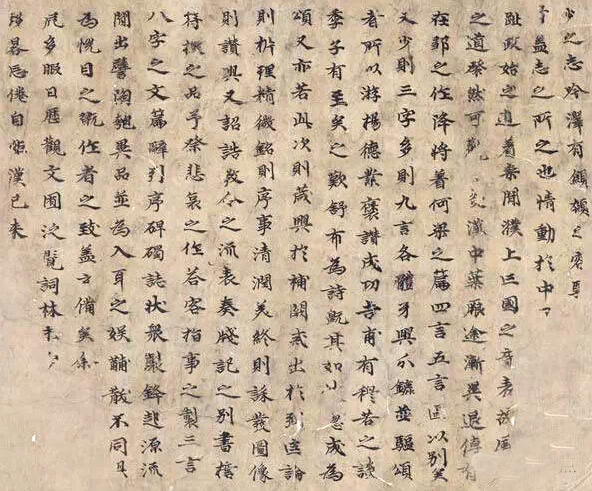 之志吟澤有顦顇之容
蓋志之所之也情動於中
趾政始之道著桑間濮上亡國之音表故風
之道粲然可觀炎漢中葉厥途漸異退傅有
在鄒之作降將著河梁之篇四言五言區以別矣
又少則三字多則九言各體牙興分鑣並驅頌
者所以游揚德業褒讃成功吉甫有穆若之談
季子有至矣之歎舒布為詩既其如忽成為
頌又亦若此次則葴興於補闕戒出於弼匡論
則析理精微銘則序事清潤美終則誄發圖像
則讃興又詔誥教令之流表奏牋記之別書檄
符檄之品弔祭悲哀之作荅客指事之製三言
八字之文篇辭引序碑碣誌狀衆製鋒起源流
間出譬陶匏異品並為入耳之娛黼黻不同具
為悅目之翫作者之致蓋云備矣余
多暇日歷觀文囿泛覽詞林未
移晷忘倦自姬漢已來